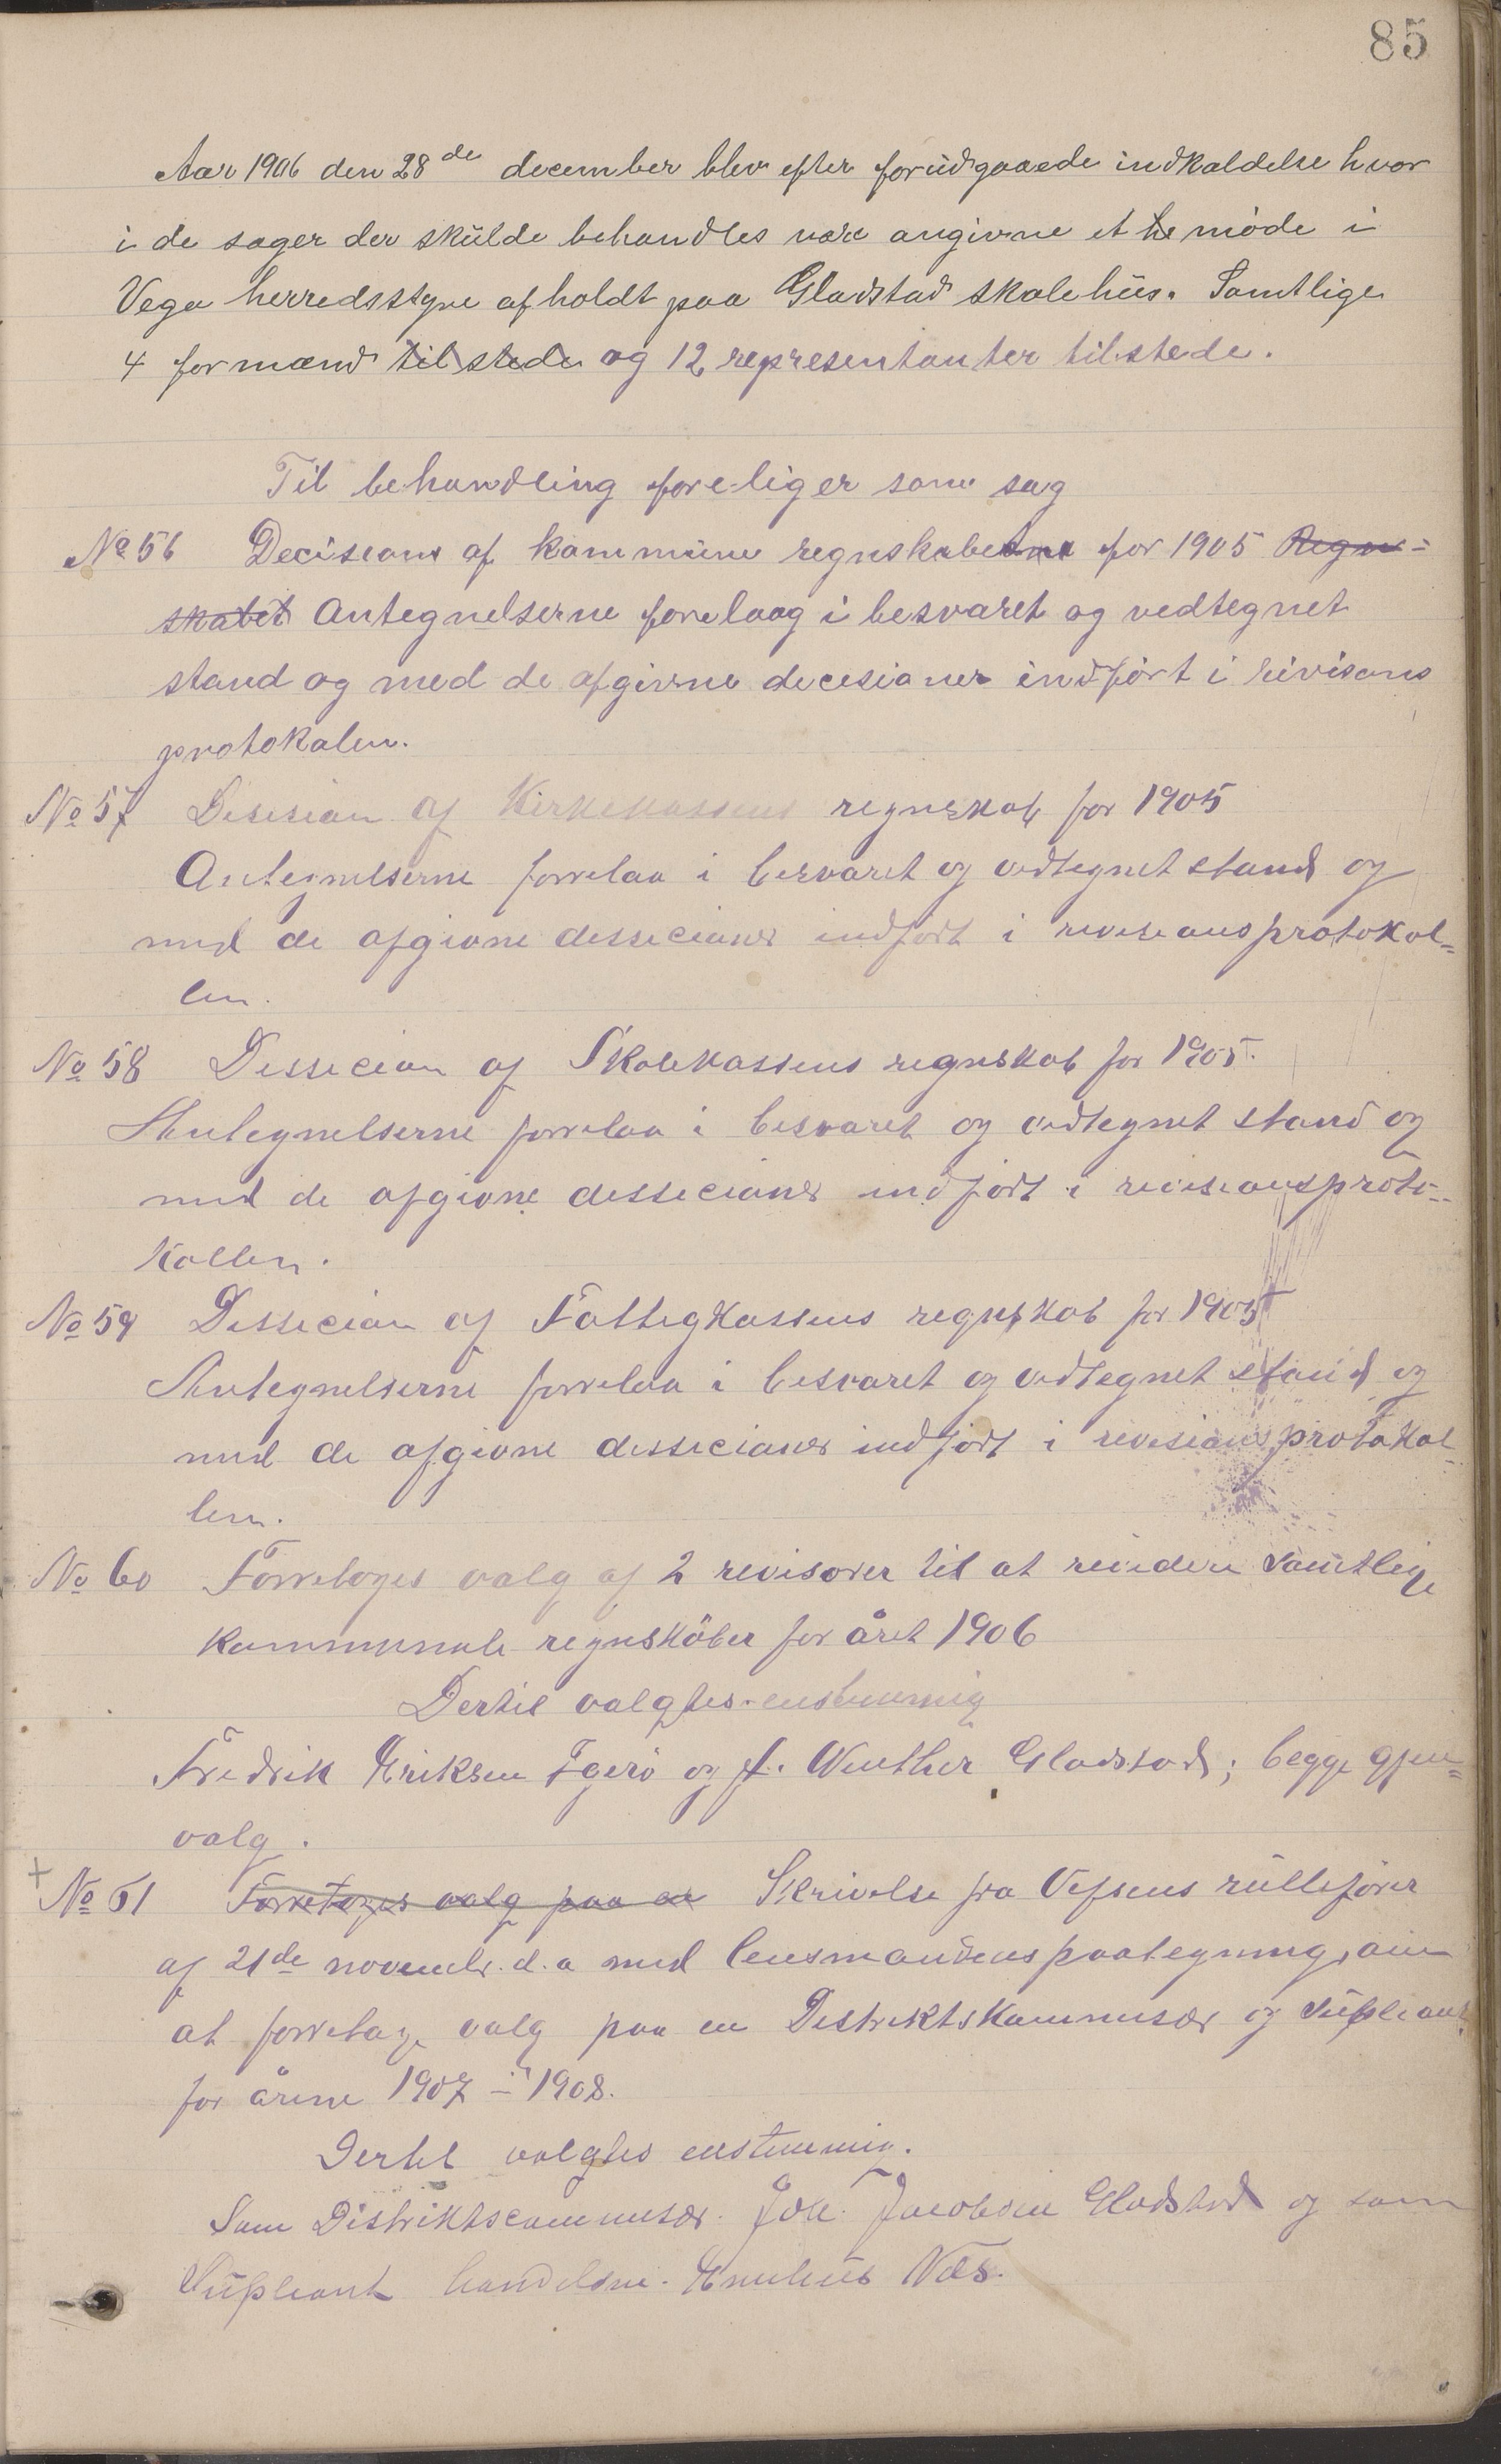 85
Aar 1906 den 28de december blev efter forüdgaaede indkaldelse hvor
i de sager der skülde behandles være angivne et he møde i
Vega herredsstyre afholdt paa Gladstad skolehüs. Samtlige
4 formænd til stede og 12 representanter tilstede.
Til behandling foreliger som sag
No 56 Decisions af kommüne regnskabet for 1905 Regn-
skabet Antegnelserne forelaag i besvaret og vedtegnet
stand og med de afgivne decesioner indført i rivisons
protokolen.
No 57 Desesion af Kirkekassens regnskab for 1905
Antegnelserne forrelaa i besvaret og vedtegnet stand og
med de afgivne dessecioner indført i reviseonsprotokol-
len.
No 58 Dessecion af Skolekassens regnskab for 1905.
Antegnelserne forrelaa i besvaret og vedtegnet stand og
med de afgivne dessecioner indført i reviseonsproto-
kollen.
No 59 Dessecion af Fattigkassens regnskab for 1905
Antegnelserne forrelaa i besvaret og vedtegnet stand og
med de afgivne dessecioner indført i revesions protokol-
len.
No 60 Forretoges valg af 2 revisorer til at revidere samtlige
kommunale regnskåber for året 1906
Dertil valgtes enstemmig
Fredrik Eriksen Igerø og J. Winther Gladstad; begge gjen-
valg.
+ No 61 Forretoges valg paa en Skrivelse fra Vefsens rüllefører
af 21de novembr. d. a med lensmandens paategning, om
at forretage valg paa en Destriktskommisær og Süpleant
for årene 1907 - 1908.
Dertil valgtes enstemmig.
Som Distriktscommisær. Joh. Jacobsen Gladstad og som
Süpleant handelsm. Emelius Næs.